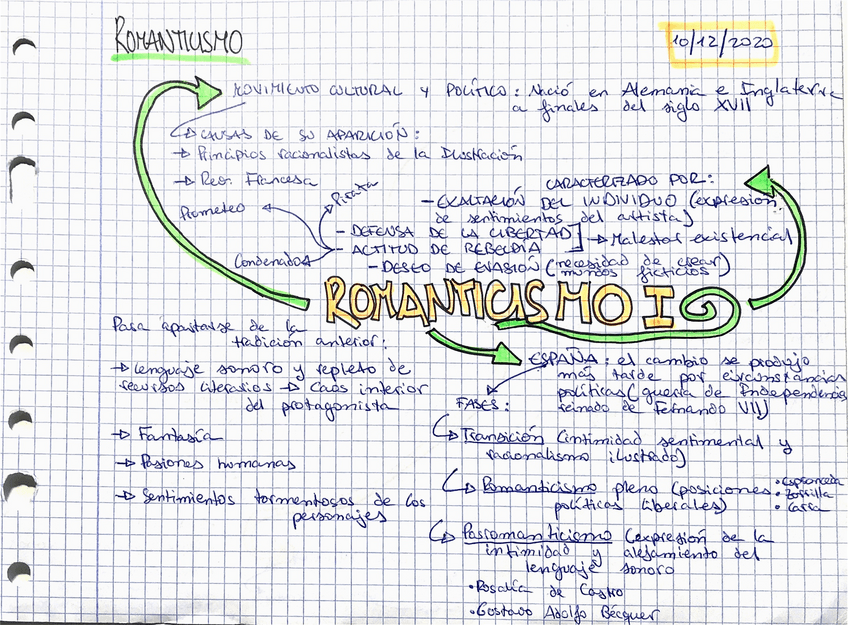 ROMANTICISMO
10/12/2020
MOVIMIENTO CULTURAL Y POLÍTICO: Nació en Alemania e Inglaterra
a finales del siglo XVII
CAUSAS DE SU APARICIÓN:
→ Principios racionalistas de la Ilustración
→ Rev. Francesa
CARACTERIZADO POR:
- EXALTACIÓN DEL INDIVIDUO (expresión
de sentimientos del artista)
- DEFENSA DE LA LIBERTAD
- ACTITUD DE REBELDÍA
→ Malestar existencial
Pirata
Prometeo
Condenados
- DESEO DE EVASIÓN (necesidad de crear
mundos ficticios)
ROMANTICISMO I
Para apartarse de la
tradición anterior:
→ Lenguaje sonoro y repleto de
recursos literarios → Caos interior
del protagonista
→ Fantasía
→ Pasiones humanas
→ Sentimientos tormentosos de los
personajes
ESPAÑA: el cambio se produjo
más tarde por circunstancias
políticas (guerra de Independencia
reinado de Fernando VII)
FASES:
Transición (intimidad sentimental y
racionalismo ilustrado)
Romanticismo pleno (posiciones
políticas liberales)
• Espronceda
• Zorrilla
• Larra
Posromanticismo (expresión de la
intimidad y alejamiento del
lenguaje sonoro
• Rosalía de Castro
• Gustavo Adolfo Bécquer